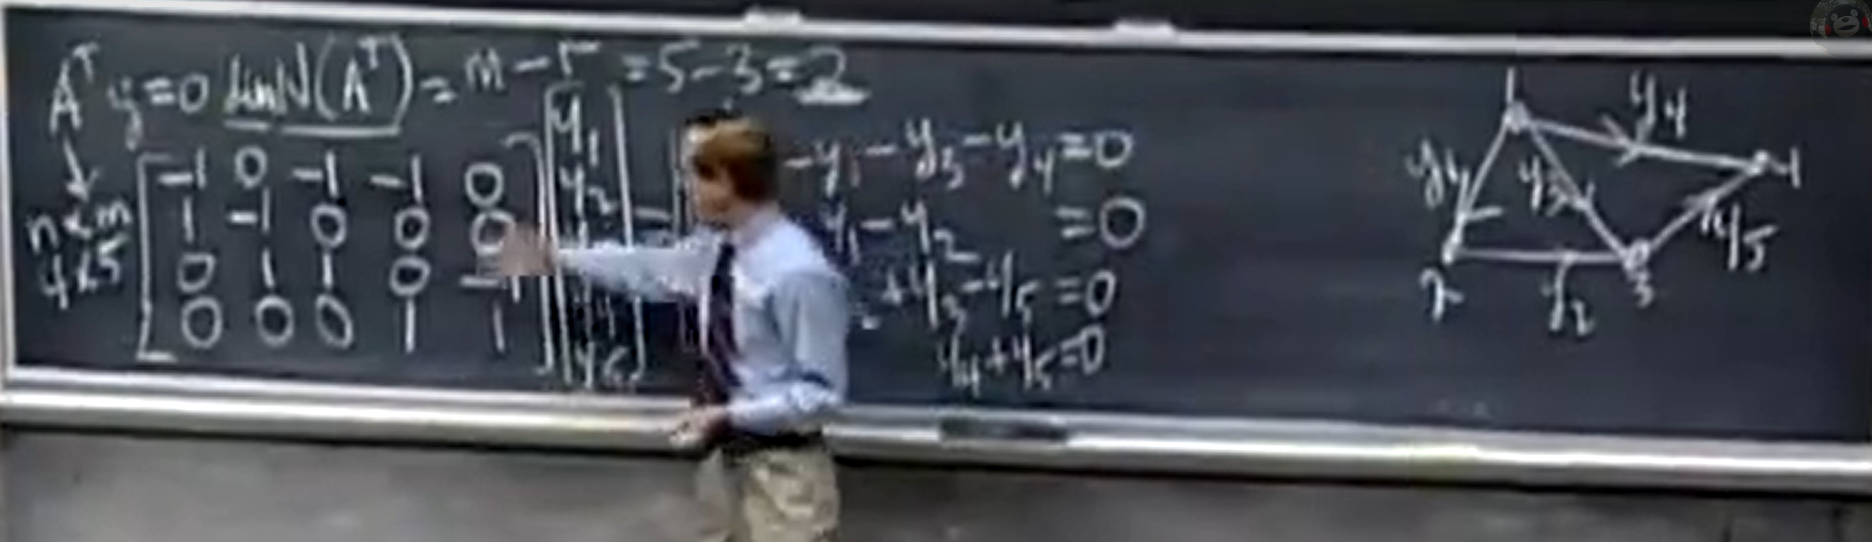 Aᵀy=0 dim N(Aᵀ) = m-r = 5-3=2
n×m
4x5
-1 0 -1 -1 0
1 -1 0 0 0
0 1 1 0 -1
0 0 0 1 1
y₁
y₂
y₄
y₅
=
-y₁-y₃-y₄=0
y₁-y₂ =0
+y₃-y₅=0
y₄+y₅=0
1
y₄
y₁
y₃
4
y₅
2
y₂
3